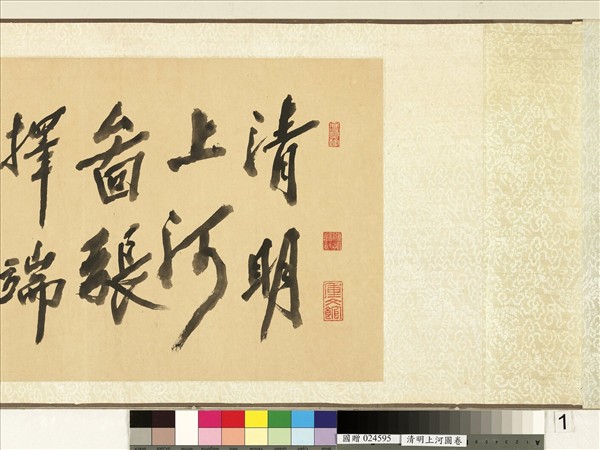 清明
上河
啚張
擇端
國贈 024595
清明上河圖卷
1